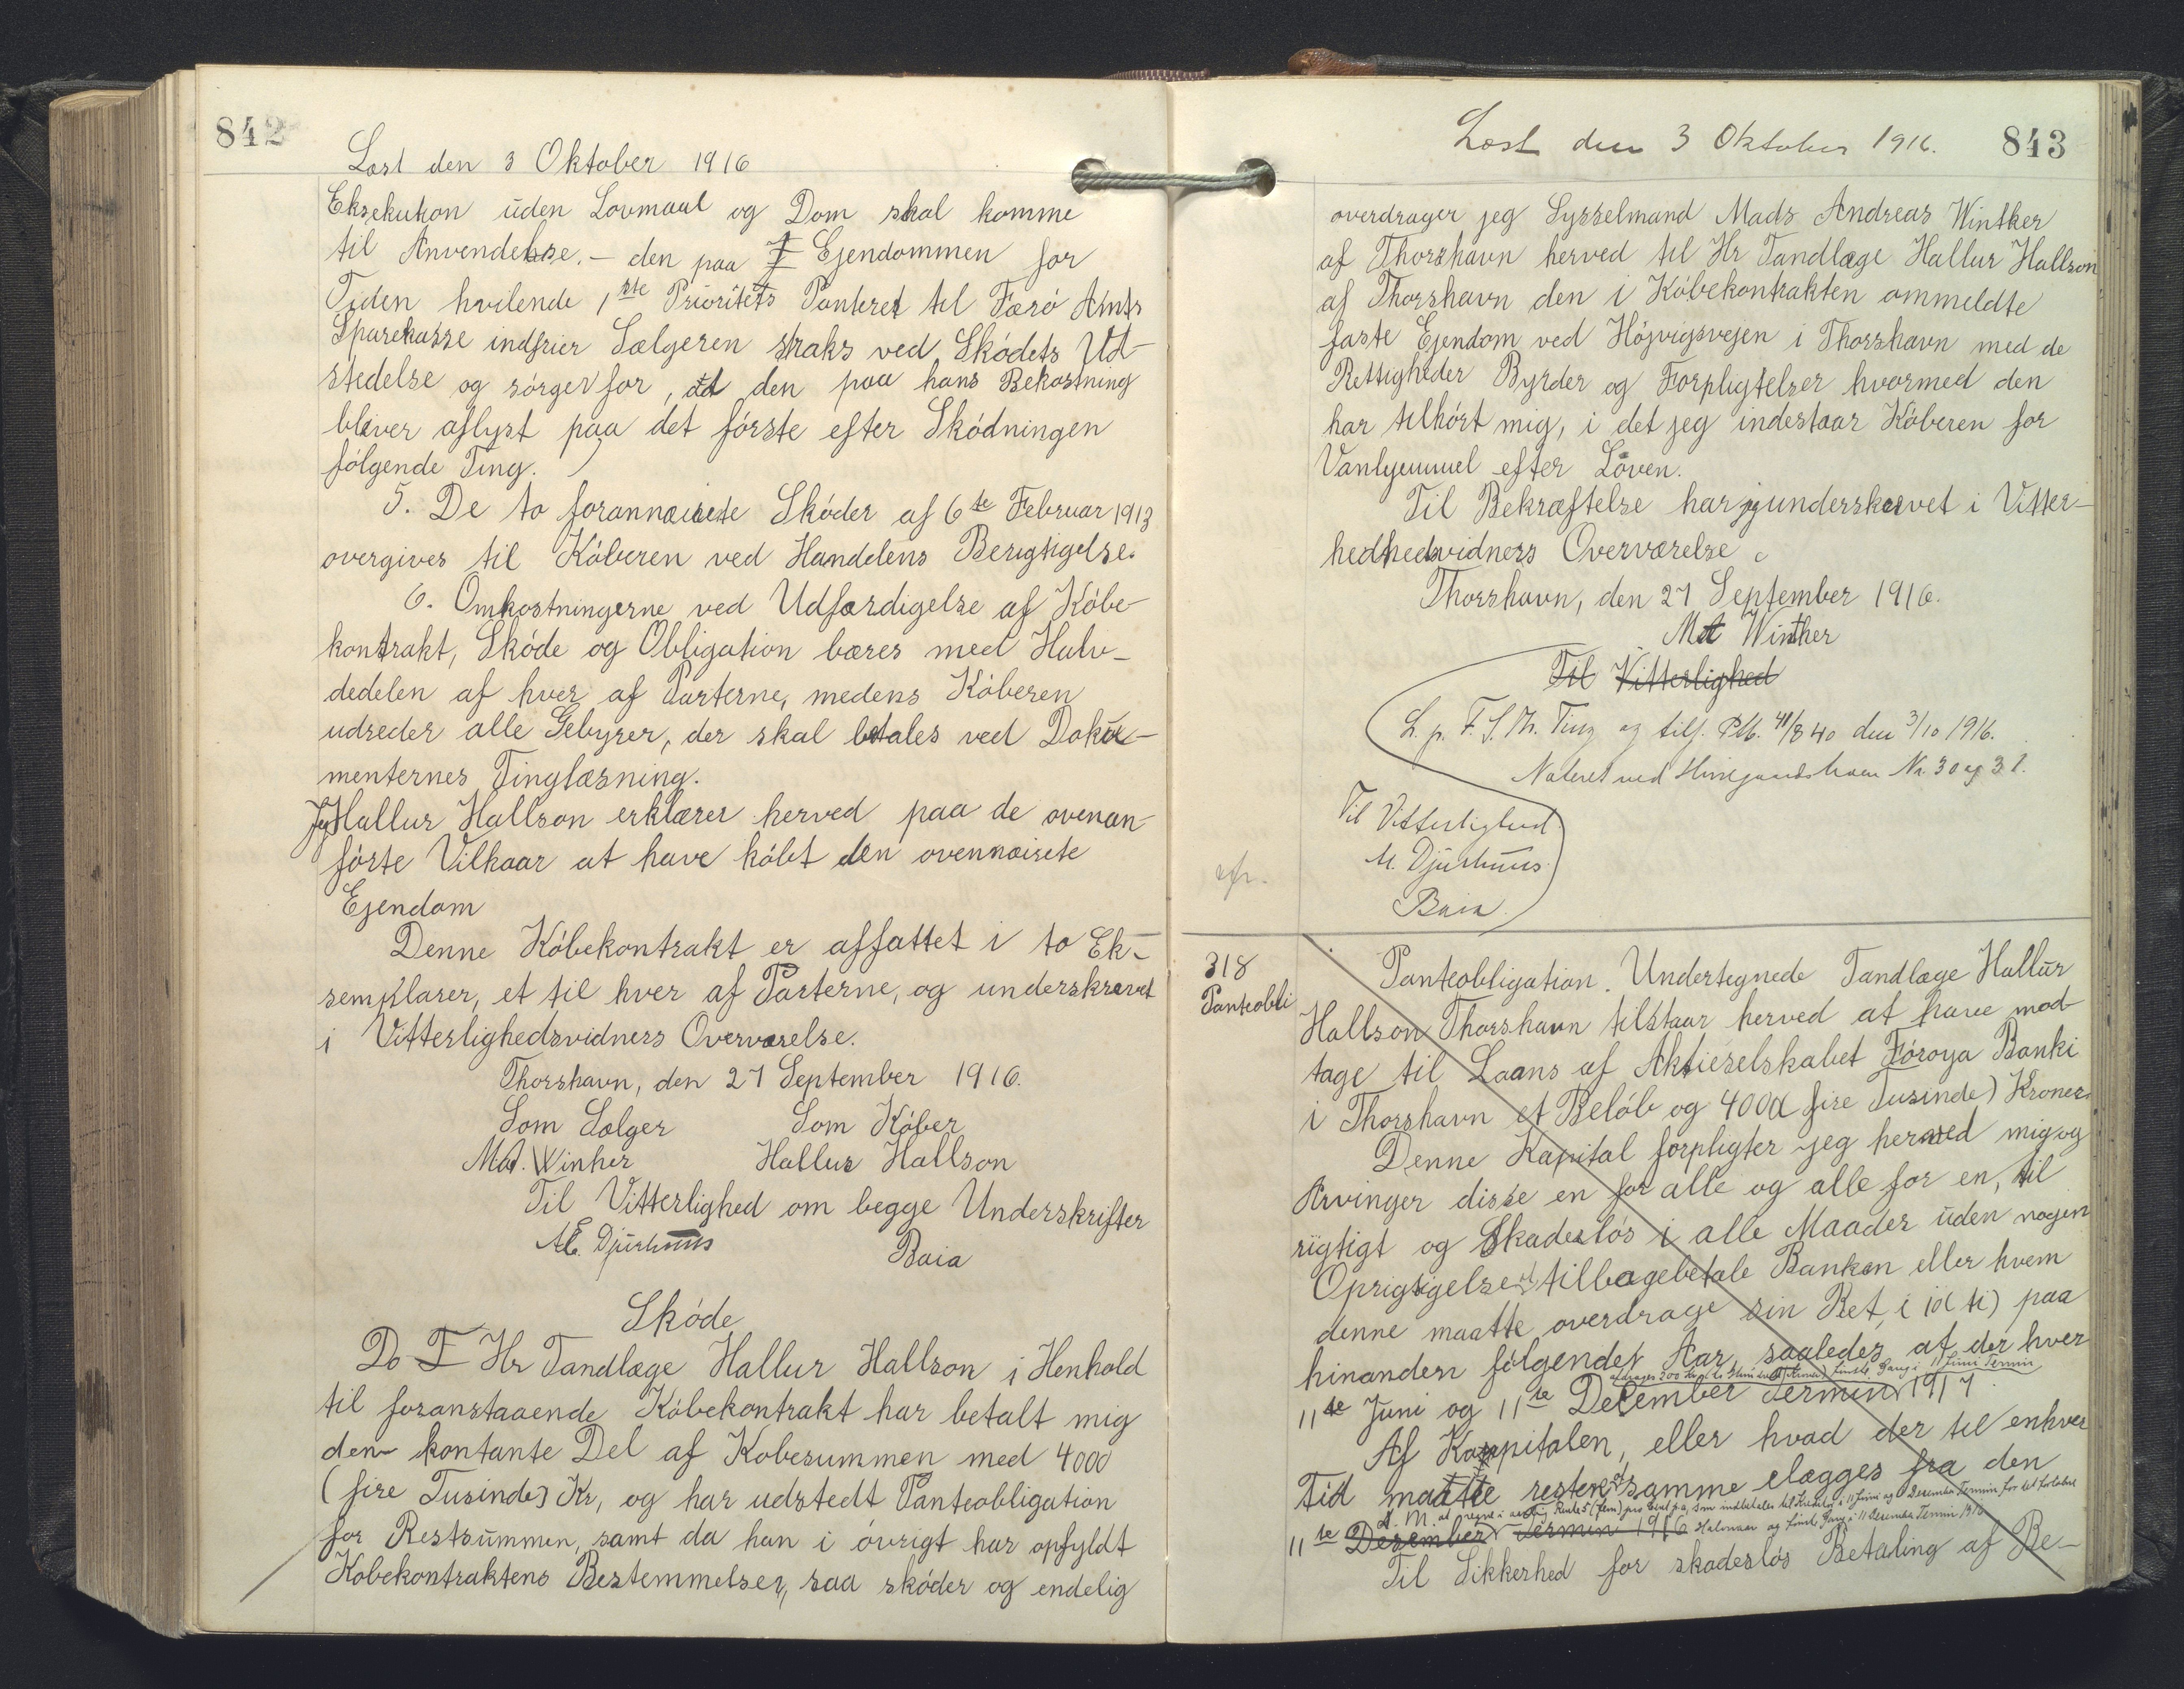 842
Læst den 3 Oktober 1916
Eksekution uden Lovmaal og Dom skal komme
til Anvendelse. – den paa Ejendommen for
Tiden hvilende 1ste Prioritets Panteret til Færö Amts
Sparekasse indfrier Sælgeren straks ved Sködets Ud-
stedelse og sörger for, at den paa hans Bekostning
bliver aflyst paa det förste efter Sködningen
fölgende Ting.
5. De to forannævnte Sköder af 6te Februar 1913
overgives til Köberen ved Handelens Berigtigelse.
6. Omkostningerne ved Udfærdigelse af Köbe-
kontrakt, Sköde og Obligation bæres med Halv-
dedelen af hver af Parterne, medens Köberen
udreder alle Gebyrer, der skal betales ved Doku-
menternes Tinglæsning.
Jeg Hallur Hallson erklærer herved paa de ovenan-
förte Vilkaar at have köbt den ovennævnte
Ejendom
Denne Köbekontrakt er affattet i to Ek-
semplarer, et til hver af Parterne, og underskrevet
i Vitterlighedsvidners Overværelse.
Thorshavn, den 27 September 1916.
Som Sælger Som Köber
MA. Winther Hallur Hallson
Til Vitterlighed om begge Underskrifter
Djurhuus
Baia
Sköde
Da Hr Tandlæge Hallur Hallson i Henhold
til foranstaaende Köbekontrakt har betalt mig
den kontante Del af Kobesummen med 4000
(fire Tusinde) Kr, og har udstedt Panteobligation
for Restsummen, samt da han i övrigt har opfyldt
Kobekontraktens Bestemmelser, saa sköder og endelig
Læst den 3 Oktober 1916. 843
overdrager jeg Sysselmand Mads Andreas Winther
af Thorshavn herved til Hr Tandlæge Hallur Hallson
af Thorshavn den i Köbekontrakten ommeldte
faste Ejendom ved Höjvigsvejen i Thorshavn med de
Rettigheder Byrder og Forpligtelser hvormed den
har tilhört mig, i det jeg indestaar Köberen for
Vanhjemmel efter Loven.
Til Bekræftelse har jeg underskrevet i Vitter-
hedhedsvidners Overværelse
Thorshavn, den 27 September 1916.
MA Winther
Til Vitterlighed
L. p. F. S. Th. Ting og tilf. P.M. 41/840 den 3/10 1916.
Noteret ved Nr. 30 og 31.
Til Vitterlighed.
M. Djurhuus
Baia
318
Panteobli
Panteobligation. Undertegnede Tandlæge Hallur
Hallson Thorshavn tilstaar herved at have mod-
tage til Laans af Aktieselskabet Föroya Banki
i Thorshavn et Belöb og 4000 fire Tusinde) Kroner.
Denne Kapital forpligter jeg herved mig og
Arvinger disse en for alle og alle for en, til
rigtigt og Skadeslös i alle Maader uden nogen
Oprigsigelse at tilbagebetale Banken eller hvem
denne maatte overdrage sin Ret, i 10 ti) paa
hinanden fölgender Aar, saaledes at der hver
11te Juni og 11te December Termin 1917
Af Kapitalen, eller hvad der til enhver
Tid maatte restere af samme elægges fra den
11te Dezember Termin 1916
Til Sikkerhed for skadeslös Betaling af Be-